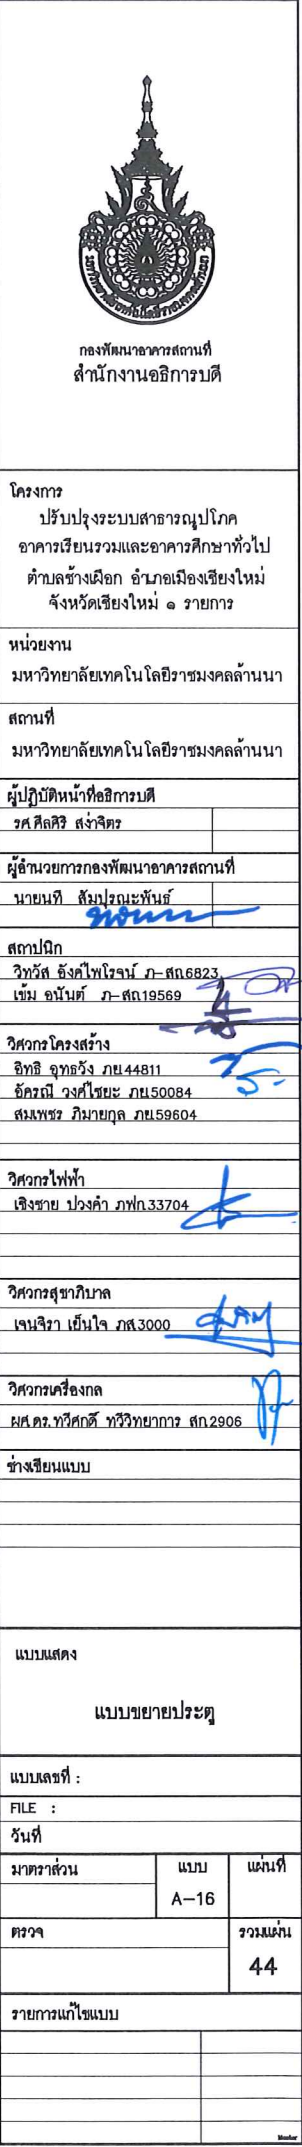 มหาวิทยาลัยเทคโนโลยีราชมงคลล้านนา
กองพัฒนาอาคารสถานที่
สำนักงานอธิการบดี
โครงการ
ปรับปรุงระบบสาธารณูปโภค
อาคารเรียนรวมและอาคารศึกษาทั่วไป
ตำบลช้างเผือก อำเภอเมืองเชียงใหม่
จังหวัดเชียงใหม่ ๑ รายการ
หน่วยงาน
มหาวิทยาลัยเทคโนโลยีราชมงคลล้านนา
สถานที่
มหาวิทยาลัยเทคโนโลยีราชมงคลล้านนา
ผู้ปฏิบัติหน้าที่อธิการบดี
รศ.ศีลศิริ สง่าจิตร
ผู้อำนวยการกองพัฒนาอาคารสถานที่
นายนที สัมปุรณะพันธ์
สถาปนิก
วิทวัส อังค์ไพโรจน์ ภ-สถ.6823
เข้ม อนันต์ ภ-สถ.19569
วิศวกรโครงสร้าง
อิทธิ อุทธวัง ภย.44811
อัครณี วงศ์ไชยะ ภย.50084
สมเพชร ภิมายกุล ภย.59604
วิศวกรไฟฟ้า
เชิงชาย ปวงคำ ภฟก.33704
วิศวกรสุขาภิบาล
เจนจิรา เย็นใจ ภส.3000
วิศวกรเครื่องกล
ผศ.ดร.ทวีศักดิ์ ทวีวิทยาการ สก.2906
ช่างเขียนแบบ
แบบแสดง
แบบขยายประตู
แบบเลขที่ :
FILE :
วันที่
มาตราส่วน แบบ แผ่นที่
A-16
ตรวจ รวมแผ่น
44
รายการแก้ไขแบบ
Master